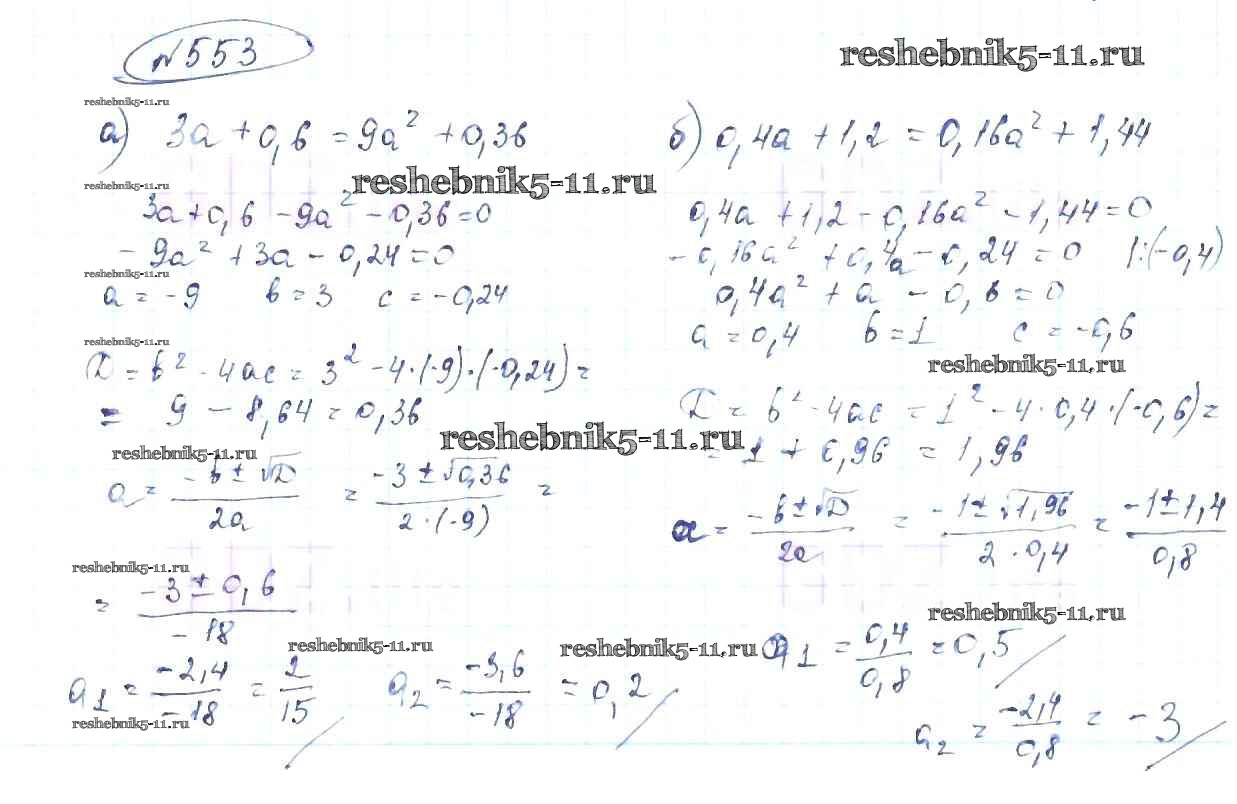 №553
reshebnik5-11.ru
reshebnik5-11.ru
а) 3a + 0,6 = 9a² + 0,36
reshebnik5-11.ru
reshebnik5-11.ru
3a + 0,6 - 9a² - 0,36 = 0
- 9a² + 3a - 0,24 = 0
reshebnik5-11.ru
a = -9 b = 3 c = -0,24
reshebnik5-11.ru
D = b² - 4ac = 3² - 4·(-9)·(-0,24) =
= 9 - 8,64 = 0,36
reshebnik5-11.ru
reshebnik5-11.ru
a = (-b ± √D)/2a = (-3 ± √0,36)/(2·(-9)) =
reshebnik5-11.ru
= (-3 ± 0,6)/-18
reshebnik5-11.ru
a₁ = -2,4/-18 = 2/15 a₂ = -3,6/-18 = 0,2
reshebnik5-11.ru
б) 0,4a + 1,2 = 0,16a² + 1,44
0,4a + 1,2 - 0,16a² - 1,44 = 0
- 0,16a² + 0,4a - 0,24 = 0 |:(-0,4)
0,4a² + a - 0,6 = 0
a = 0,4 b = 1 c = -0,6
reshebnik5-11.ru
D = b² - 4ac = 1² - 4·0,4·(-0,6) =
= 1 + 0,96 = 1,96
a = (-b ± √D)/2a = (-1 ± √1,96)/(2·0,4) = (-1 ± 1,4)/0,8
reshebnik5-11.ru
reshebnik5-11.ru
a₁ = 0,4/0,8 = 0,5
a₂ = -2,4/0,8 = -3